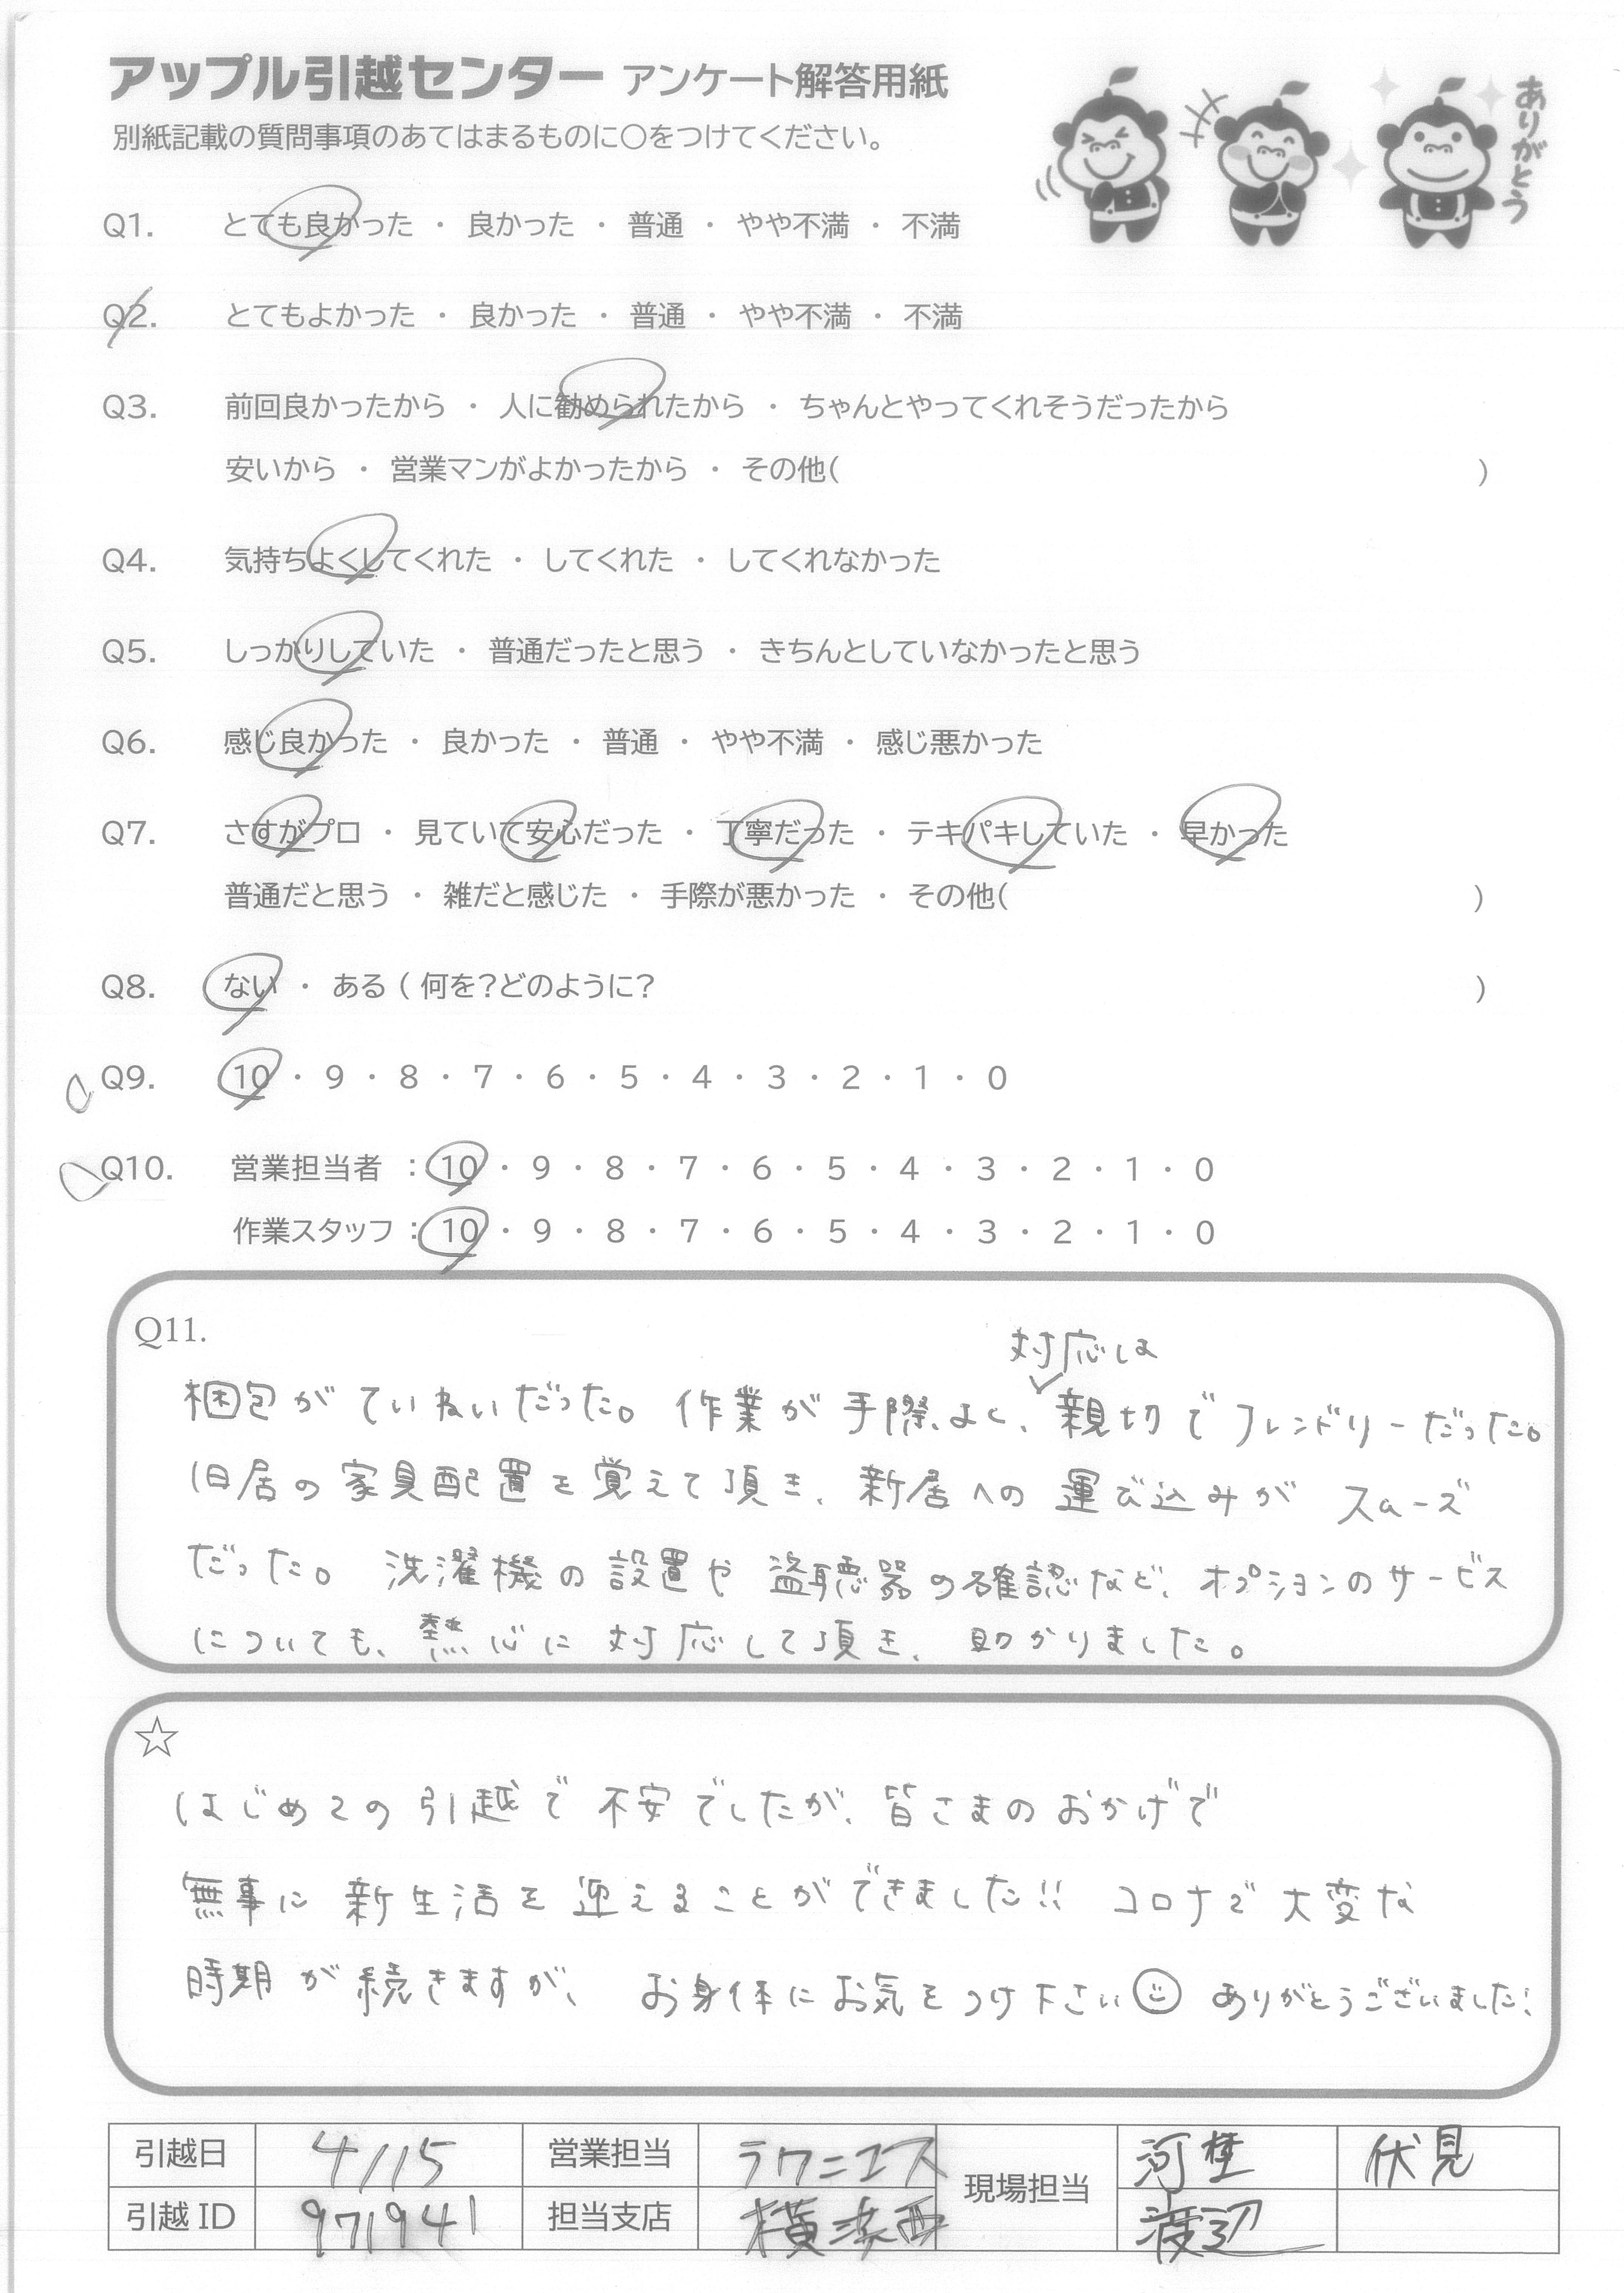 アップル引越センター アンケート解答用紙
別紙記載の質問事項のあてはまるものに○をつけてください。
ありがとう
Q1. とても良かった ・ 良かった ・ 普通 ・ やや不満 ・ 不満
Q2. とてもよかった ・ 良かった ・ 普通 ・ やや不満 ・ 不満
Q3. 前回良かったから ・ 人に勧められたから ・ ちゃんとやってくれそうだったから
安いから ・ 営業マンがよかったから ・ その他( )
Q4. 気持ちよくしてくれた ・ してくれた ・ してくれなかった
Q5. しっかりしていた ・ 普通だったと思う ・ きちんとしていなかったと思う
Q6. 感じ良かった ・ 良かった ・ 普通 ・ やや不満 ・ 感じ悪かった
Q7. さすがプロ ・ 見ていて安心だった ・ 丁寧だった ・ テキパキしていた ・ 早かった
普通だと思う ・ 雑だと感じた ・ 手際が悪かった ・ その他( )
Q8. ない ・ ある ( 何を?どのように? )
Q9. 10 ・ 9 ・ 8 ・ 7 ・ 6 ・ 5 ・ 4 ・ 3 ・ 2 ・ 1 ・ 0
Q10. 営業担当者 : 10 ・ 9 ・ 8 ・ 7 ・ 6 ・ 5 ・ 4 ・ 3 ・ 2 ・ 1 ・ 0
作業スタッフ : 10 ・ 9 ・ 8 ・ 7 ・ 6 ・ 5 ・ 4 ・ 3 ・ 2 ・ 1 ・ 0
Q11.
対応は
梱包がていねいだった。作業が手際よく、親切でフレンドリーだった。
旧居の家具配置を覚えて頂き、新居への運び込みがスムーズ
だった。洗濯機の設置や盗聴器の確認など、オプションのサービス
についても、熱心に対応して頂き、助かりました。
☆
はじめての引越で不安でしたが、皆さまのおかげで
無事に新生活を迎えることができました!! コロナで大変な
時期が続きますが、お身体にお気をつけ下さい ありがとうございました!
引越日 4/15 営業担当 ラワニエス 現場担当 河埜 伏見
引越 ID 971941 担当支店 横浜西 渡辺